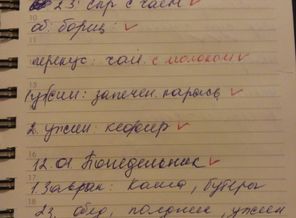 23: сыр с чаем
об: борщ
перекус: чай с молоком
1 ужин: запечен. карась
2. ужин: кефир
12.01 Понедельник
1 Завтрак: каша, бутерб
23. обед, полдник, ужин